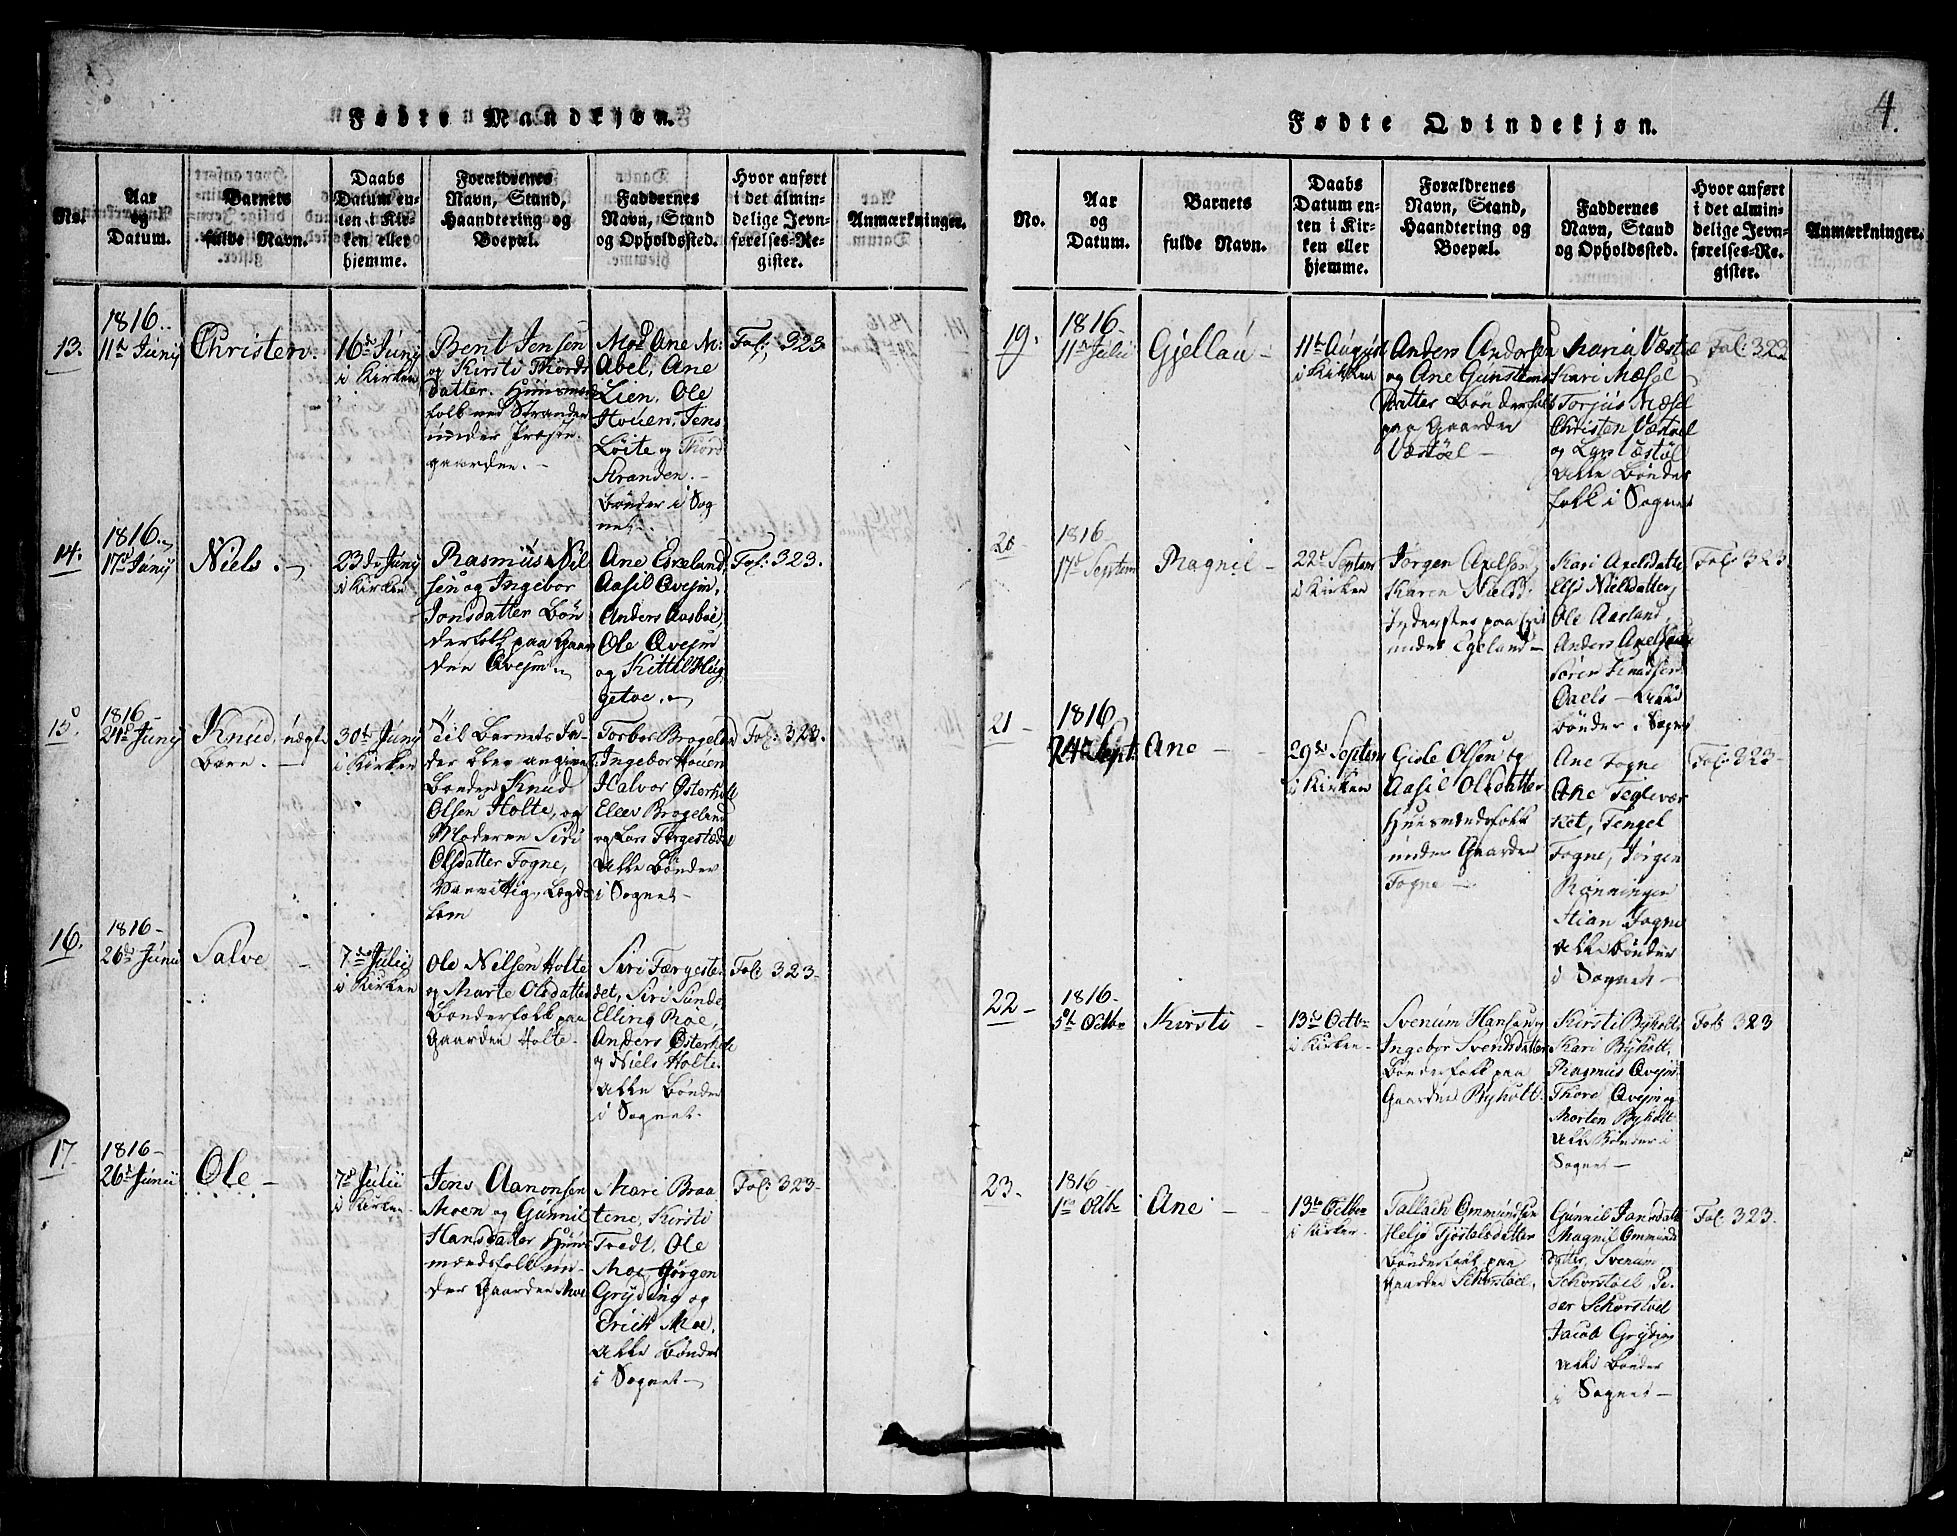 Fødte Mandkjøn.
No.
Aar
og
Datum.
Barnets
fulde Navn.
Daabs
Datum en-
ten i Kir-
ken eller
hjemme.
Forældrenes
Navn, Stand,
Haandtering og
Boepæl.
Faddernes
Navn, Stand
og Opholdssted.
Hvor anført
i det almin-
delige Jevn-
førelses-Re-
gister.
Anmærkninger.
13.
1816.
11te Junij
Christen.
16de Junij
i Kirken
Bent Jensen
og Kirsti Thords
datter. Huusmands
folk ved Stranden
under Præste-
gaarden.
Mad Ane M:
Abel, Ane
Lien, Ole
Hoúen, Jens
Löite og Thord
Stranden.
Bønder i Sog
net.
Fol: 323
14.
1816.
17de Junij
Niels.
23de Junij
i Kirken
Rasmús Nil
sen og Ingebor
Jonsdatter Bøn
derfolk paa Gaar
den Qvejm
Ane Eskeland,
Aasil Qvejm,
Anders Aasbøe,
Ole Qvejm
og Kittil Hug
getve.
Fol: 323.
15
1816
24de Junij
Knúd, uægte
Barn.
30te Junij
i Kirken
Til Barnets Fa-
der blev angiven
Bonden Knud
Olsen Holte, og
Moderen Siri
Olsdatter Fogne,
Vanvittig, Lægds
lem
Torbor Brogeland
Ingebor Hoúen
Halvor Østerholt
Ellev Brogeland
og Lars Færgestædet
Alle Bønder
i Sognet
Fol: 323.
16.
1816
26de Júnii
Salve
7de Júlij
i Kirken
Ole Nilsen Holte
og Marte Olsdatter
Bønderfolk paa
Gaarden Holte
Siri Færgeste
det, Siri Sunde
Elling Röe,
Anders Østerholt
og Niels Holte
Alle Bønder
i Sognet.
Fol: 323
17
1816
26de Júnii
Ole
7de Júlii
i Kirken
Jens Aanonsen
Moen og Gúnnil
Hansdatter Huus
mændsfolk un-
der Gaarden Moe
Mari Braa
tene, Kirsti
Tvedt, Ole
Moe, Jörgen
Grÿding og
Erich Moe,
Alle Bønder
i Sognet
Fol: 323
Fødte Qvindekjøn.
4.
No.
Aar
og
Datum.
Barnets
fulde Navn.
Daabs
Datum en-
ten i Kir-
ken eller
hjemme.
Forældrenes
Navn, Stand,
Haandtering og
Boepæl.
Faddernes
Navn, Stand
og Opholdssted.
Hvor anført
i det almin-
delige Jevn-
førelses-Re-
gister.
Anmærkninger.
19.
1816
11te Juli
Gjellaú
11te August
i Kirken
Anders Andersen
og Ane Gúnstens
Datter Bønderfolk
paa Gaarden
Væstöel
Maria Væstöl
Kari Mæsel
Torjús Mæsel
Christen Væstöel
og Lars Væstöl
Alle Bønder
folk i Sognet
Fol: 323
20
1816
17de Septem
Ragnil
22de Septem
i Kirken
Jörgen Axelsen
Karen Nielsd:
Inderster paa
under Egeland
Kari Axelsdatter
Else Nielsdatter,
Ole Aasland,
Anders Axelsen
Sören Knudsen
Alle
Bønder i Sognet
Fol: 323
21
1816
24de Sept:
Ane
29de Septem
i Kirken
Gisle Olsen og
Aasil Olsdatter
Huusmændsfolk
under Gaarden
Fogne
Ane Fogne
Ane Teglevær
ket, Tengel
Fogne, Jörgen
Rönningen
Stian Fogne
Alle Bønder
i Sognet
Fol: 323
22
1816
5te Octbr
Kirsti
13de Octbr
i Kirken
Svenúm Hansen og
Ingebor Svendsdatter
Bønderfolk paa
Gaarden Bÿholt
Kirsti Bÿholt
Kari Bÿholt,
Rasmus Qvejm
Thore Qvejm og
Morten Bÿholt
Alle Bønder i
Sognet
Fol: 323
23.
1816
1te Octbr
Ane
13de Octbr
i Kirken
Tallach Ommúndsen
Helje Tjöstelsdatter
Bønderfolk paa
Gaarden Schorstöel,
Gúnnil Jonsdatter
Magnil Ommunds
datter, Svenúm
Schorstöel, Pe-
der Schorstöel
Jacob Grÿding
Alle Bønder
i Sognet
Fol: 323.